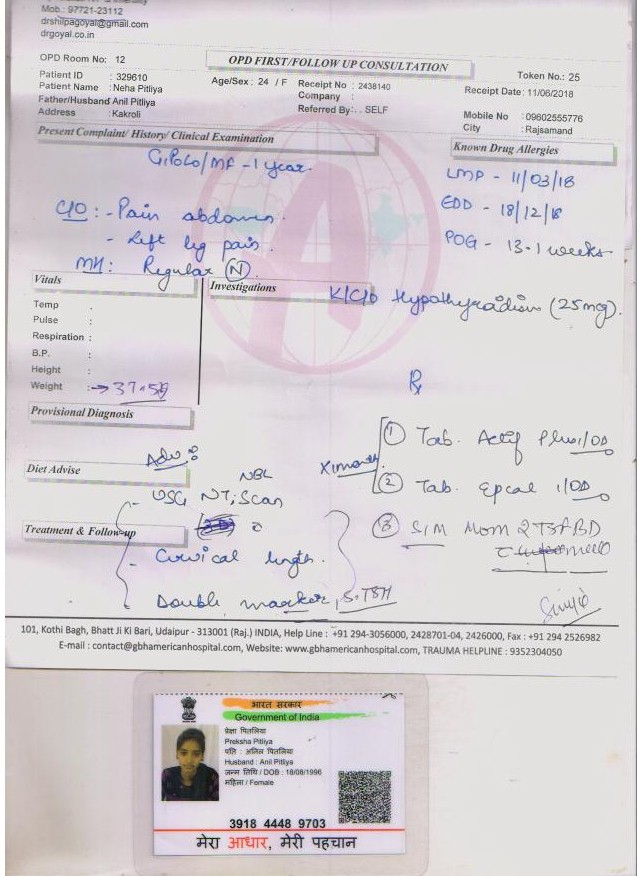 Mob : 97721-23112
drshilpagoyal@gmail.com
drgoyal.co.in
OPD Room No: 12
OPD FIRST/FOLLOW UP CONSULTATION
Token No.: 25
Patient ID : 329610
Age/Sex : 24 / F
Receipt No : 2438140
Receipt Date: 11/06/2018
Patient Name : Neha Pitliya
Company :
Father/Husband Anil Pitliya
Referred By: . . SELF
Mobile No : 09602555776
Address : Kakroli
City : Rajsamand
Present Complaint/ History/ Clinical Examination
Known Drug Allergies
G1P0L0/MF - 1 year.
LMP - 11/03/18
EDD - 18/12/18
POG - 13.1 weeks
C/O : - Pain abdomen.
- Left leg pain.
MH : Regular (N).
Vitals
Investigations
K/C/O Hypothyroidism (25mcg).
Temp :
Pulse :
Respiration :
B.P. :
Height :
Weight :→ 37.5
Rx
Provisional Diagnosis
Adv :
X1month
① Tab. Actif Plus 1/OD
② Tab. Epcal 1/OD
③ SIM MOM 2TSF BD
Diet Advise
NBL
- USG NT; Scan
Treatment & Follow-up
- Cervical length.
Double marker, S.TSH
101, Kothi Bagh, Bhatt Ji Ki Bari, Udaipur - 313001 (Raj.) INDIA, Help Line : +91 294-3056000, 2428701-04, 2426000, Fax : +91 294 2526982
E-mail : contact@gbhamericanhospital.com, Website: www.gbhamericanhospital.com, TRAUMA HELPLINE : 9352304050
भारत सरकार
Government of India
प्रेक्षा पितलिया
Preksha Pitliya
पति : अनिल पितलिया
Husband : Anil Pitliya
जन्म तिथि / DOB : 18/08/1996
महिला / Female
3918 4448 9703
मेरा आधार, मेरी पहचान